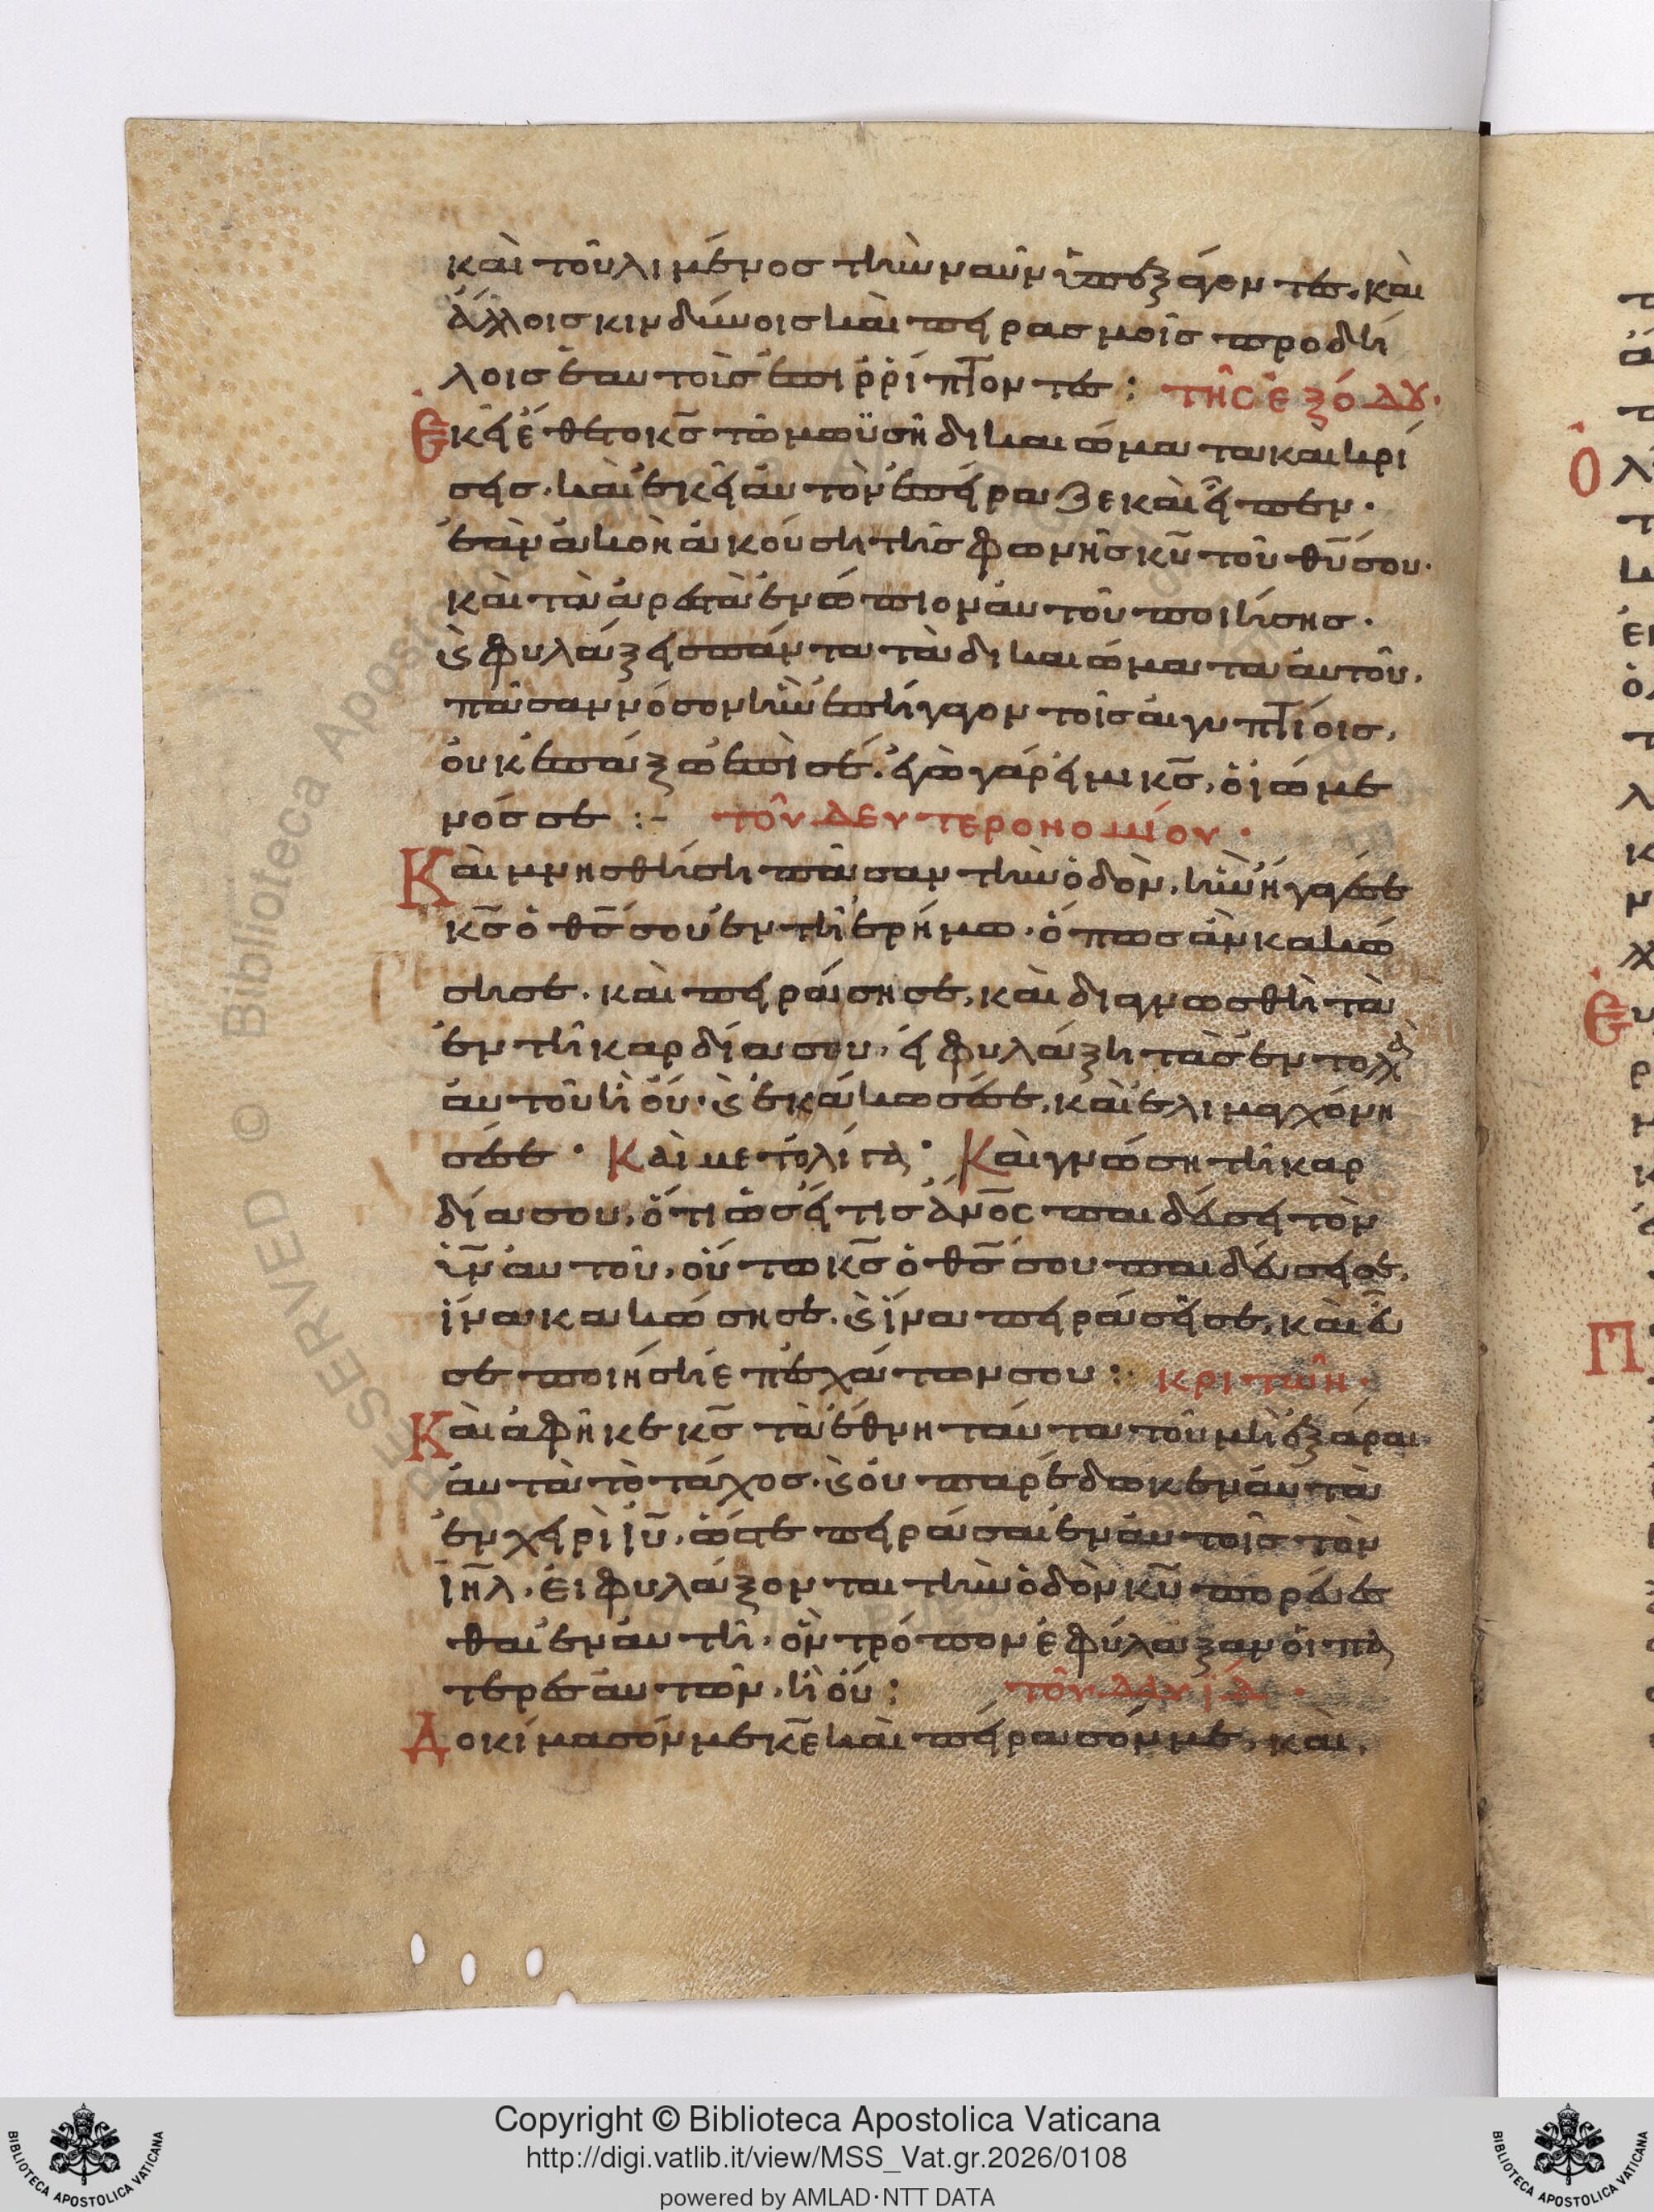 καὶ τοῦ λιμένος τὴν ναῦν ὑπεξάγοντες, καὶ
ἄλλοις κινδύνοις καὶ πειρασμοῖς προδή
λοις ἑαυτοὺς ἐπιρρίπτοντες : τῆς ἐξόδου·
Ἐκεῖ ἔθετο κς̄ τῷ μωϋσῇ δικαιώματα καὶ κρί
σεις· καὶ ἐκεῖ αὐτὸν ἐπείραζε καὶ εἶπεν·
ἐὰν ἀκοῇ ἀκούσῃ τῆς φωνῆς κῡ τοῦ θῡ σου·
καὶ τὰ ἀρεστὰ ἐνώπιον αὐτοῦ ποιήσῃς·
ϗ φυλάξεις πάντα τὰ δικαιώματα αὐτοῦ,
πᾶσαν νόσον ἣν ἐπήγαγον τοῖς αἰγυπτίοις,
οὐκ ἐπάξω ἐπὶ σέ· ἐγὼ γάρ εἰμι κς̄, ὁ ἰώμε
νός σε :– τοῦ Δευτερονομίου·
Καὶ μνησθήσῃ πᾶσαν τὴν ὁδὸν, ἣν ἤγαγέ σε
κς̄ ὁ θς̄ σου ἐν τῇ ἐρήμω· ὅπως ἂν κακώ
σῃ σε· καὶ πειράσῃ σε, καὶ διαγνωσθῇ τὰ
ἐν τῇ καρδία σου, εἰ φυλάξῃ τὰς ἐντολὰς
αὐτοῦ ἢ οὔ· ϗ ἐκάκωσέ σε, καὶ ἐλιμαγχόνη
σέ σε· Καὶ μετ' ὀλίγα· Καὶ γνώσῃ τῇ καρ
δία σου, ὅτι ὡσεί τις ἄν̄ος παιδεύσει τὸν
ὑν̄ αὐτοῦ, οὕτω κς̄ ὁ θς̄ σου παιδεύσει σε,
ἵνα κακώσῃ σε· ϗ ἵνα πειράσει σε, καὶ εὖ
σε ποιήσῃ ἐπ' ἐσχάτων σου :· κριτῶν·
Καὶ ἀφῆκε κς̄ τὰ ἔθνη ταῦτα τοῦ μὴ ἐξάραι
αὐτὰ τὸ τάχος· ϗ οὐ παρέδωκεν αὐτὰ
ἐν χειρὶ ιῡ, ὥστε πειράσαι ἐν αὐτοῖς τὸν
ιη̄λ, εἰ φυλάξονται τὴν ὁδὸν κῡ πορεύεσ
θαι ἐν αὐτῇ, ὃν τρόπον ἐφύλαξαν οἱ πα
τέρες αὐτῶν, ἢ οὔ : τοῦ Δαυίδ·
Δοκίμασόν με κε̄ καὶ πείρασόν με, καὶ,
Copyright © Biblioteca Apostolica Vaticana
http://digi.vatlib.it/view/MSS_Vat.gr.2026/0108
powered by AMLAD·NTT DATA